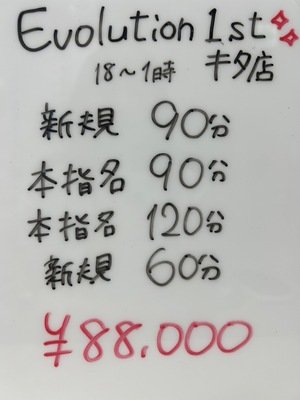 Evolution 1st
18～1時 キタ店
新規 90分
本指名 90分
本指名 120分
新規 60分
¥88.000